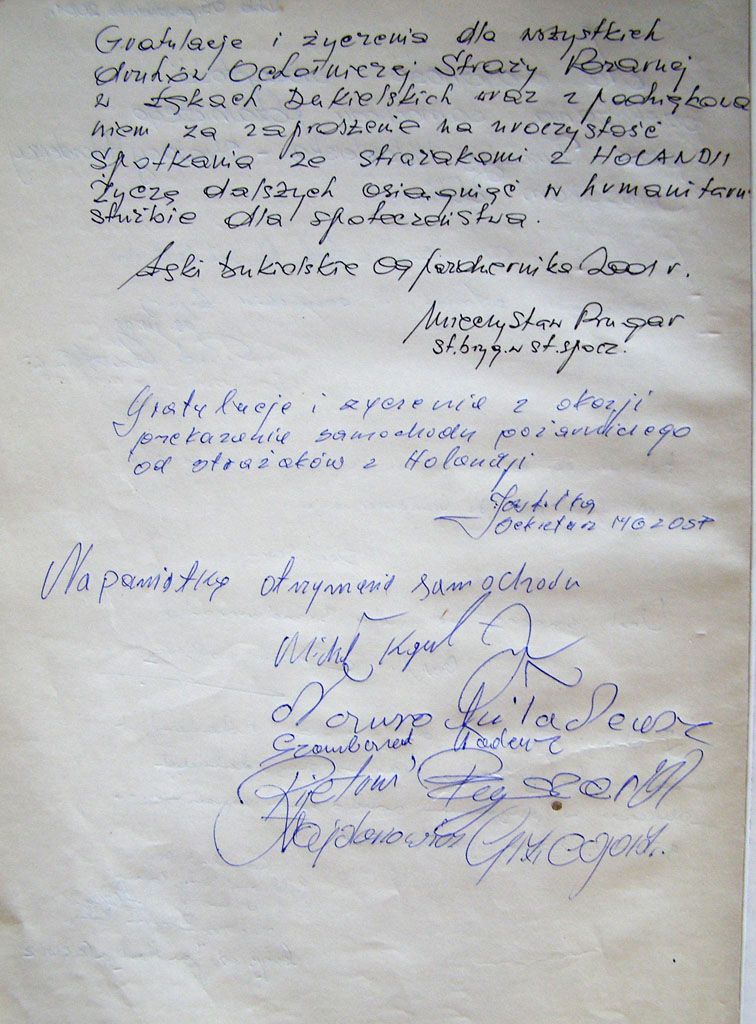 Gratulacje i życzenia dla wszystkich
druhów Ochotniczej Straży Pożarnej
w Łękach Dukielskich wraz z podziękowa
niem za zaproszenie na uroczystość
spotkania ze strażakami z HOLANDII
Życzę dalszych osiągnięć w humanitarn
służbie dla społeczeństwa.
Łęki Dukielskie 09 października 2001 r.
Mieczysław Prugar
st.bryg. w st.spocz.
Gratulacje i życzenia z okazji
przekazania samochodu pożarniczego
od strażaków z Holandji
Sekretarz MG ZOSP
Na pamiątkę otrzymania samochodu
Tadeusz
Ryszard
Najdanowicz Grzegorz